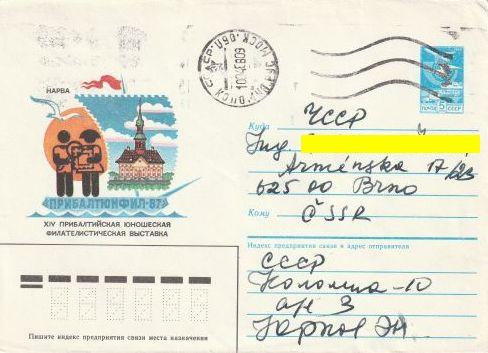 НАРВА
ПРИБАЛТЮНФИЛ-87
XIV ПРИБАЛТИЙСКАЯ ЮНОШЕСКАЯ
ФИЛАТЕЛИСТИЧЕСКАЯ ВЫСТАВКА
ПОЧТА 5 СССР
Куда ЧССР
Ing.
Arménska 17/
625 00 Brno
Кому ČSSR
Индекс предприятия связи и адрес отправителя
СССР
Коломна-10
ая 3
Карпов Эн.
Пишите индекс предприятия связи места назначения